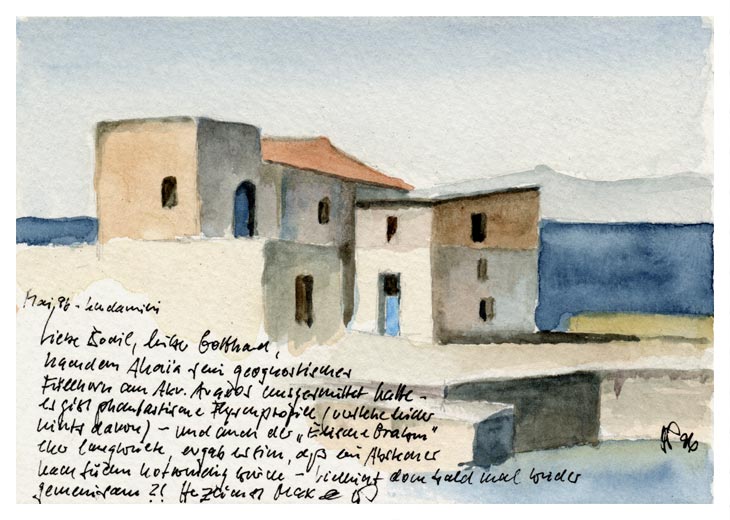 Mai, 96 - Kardamili
Liebe Bodil, lieber Gotthard,
nachdem Ahaïa sein geognostisches
Füllhorn am Akr. Araxos ausgeschüttet hatte -
es gibt phantastische Flyschprofile (verstehe leider
nichts davon) - und auch der „Elische
eher langweilte, ergab es sich, daß ein Abstecher
nach Süden notwendig wurde - vielleicht doch bald mal wieder
gemeinsam?! Herzlichst Max
96